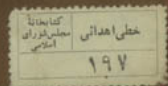 کتابخانهٔ
مجلس شورای
اسلامی
خطی اهدائی
۱۹۷